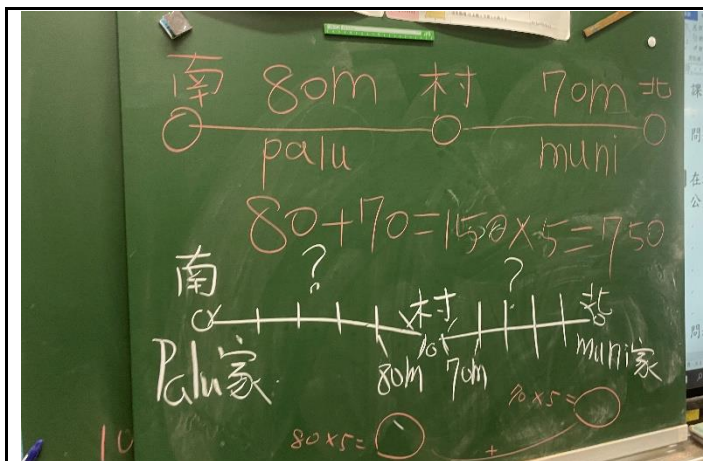 南 80m 村 70m 北
palu muni
80+70=150×5=750
南 ? 村 ? 北
Palu家 80m 70m muni家
80×5= + 70×5=
10
課
問
在
公
問